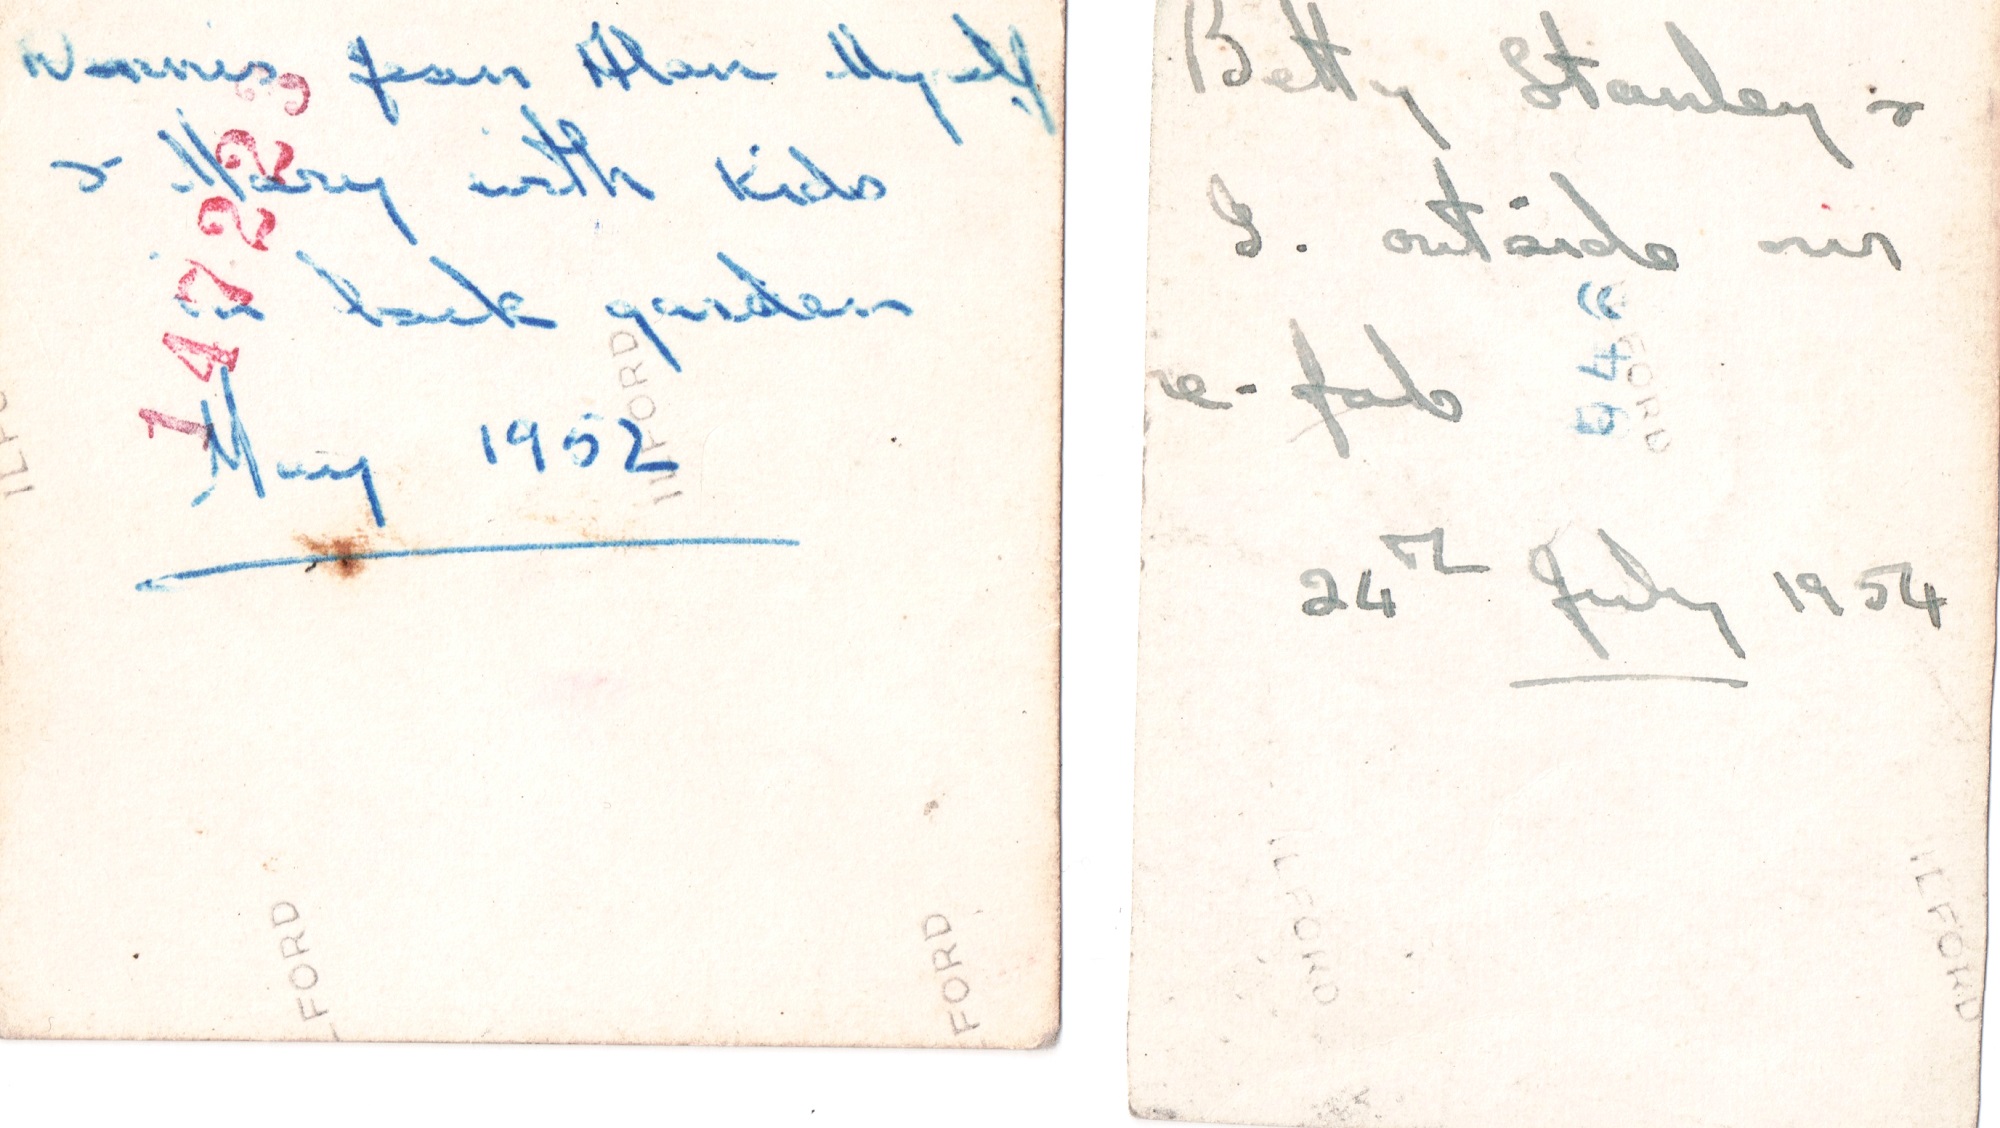 Dennis Jean Alan Myself
& Mary with kids
in back garden
May 1952
1472229
ILFORD
FORD
FORD
Betty Stanley &
I. outside our
re-fab
24th July 1954
ILFORD
ILFORD